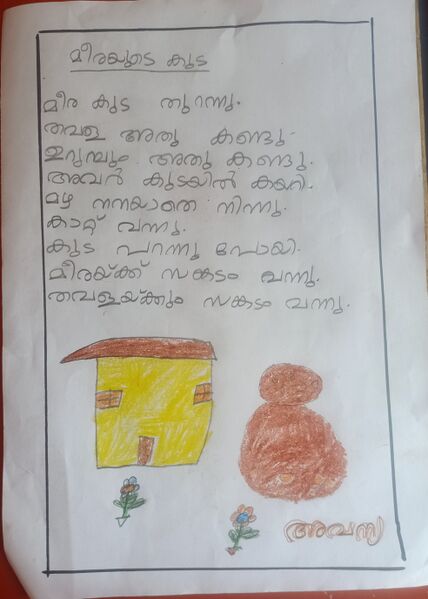 മീരയുടെ കുട
മീര കുട തുറന്നു.
തവള അതു കണ്ടു.
ഉറുമ്പും അതു കണ്ടു.
അവർ കുടയിൽ കയറി.
മഴ നനയാതെ നിന്നു.
കാറ്റ് വന്നു.
കുട പറന്നു പോയി.
മീരയ്ക്ക് സങ്കടം വന്നു.
തവളയ്ക്കും സങ്കടം വന്നു.